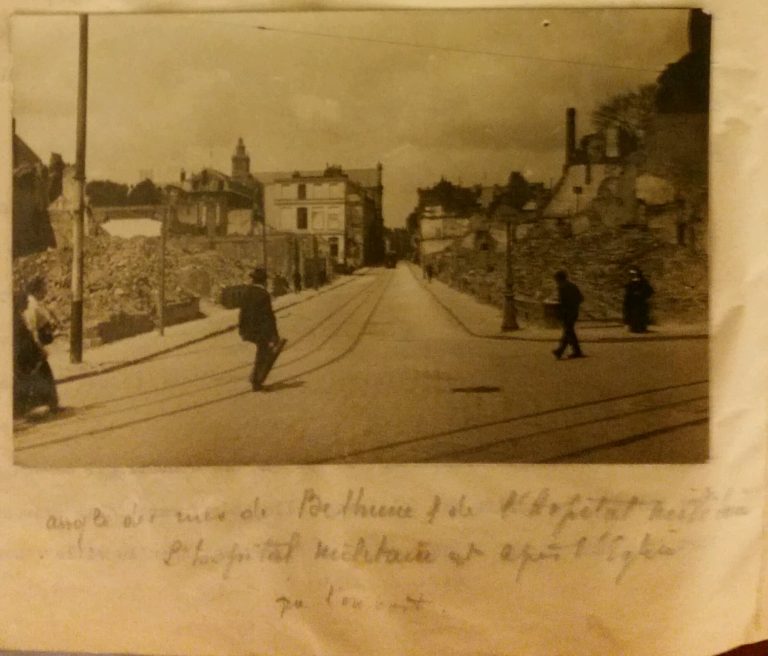 angle des rues de Bethune & de l'hopital militaire
l'hopital militaire et après l'Eglise
que l'on voit.